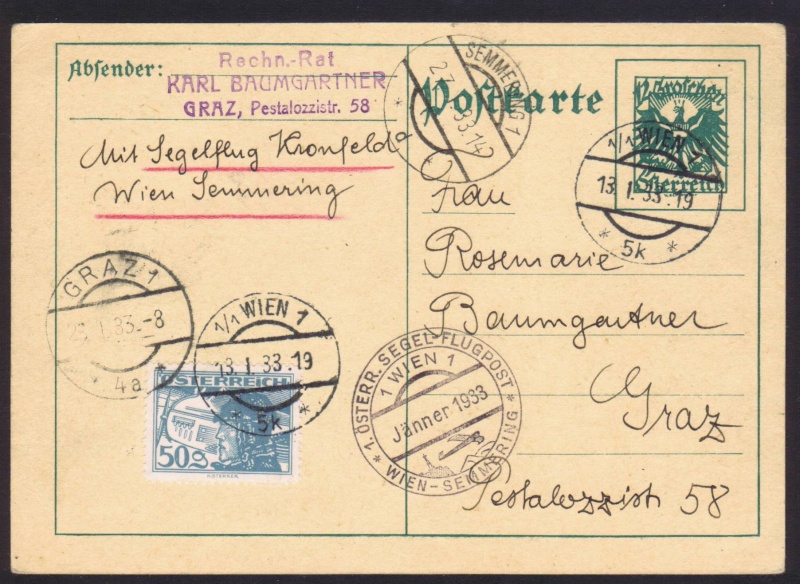 Absender:
Rechn.-Rat
KARL BAUMGARTNER
GRAZ, Pestalozzistr. 58
Mit Segelflug Kronfeld
Wien Semmering
Postkarte
SEMMERING 1
33.14
12 Groschen
Österreich
1/1 WIEN 1
13.I.33.19
* 5k *
Frau
Rosemarie
Baumgartner
Graz
Pestalozzistr 58
GRAZ 1
I.33.-8
4a *
1/1 WIEN 1
13.I.33.19
* 5k *
ÖSTERREICH
50g
* 1. ÖSTERR. SEGEL-FLUGPOST *
1 WIEN 1
Jänner 1933
WIEN-SEMMERING